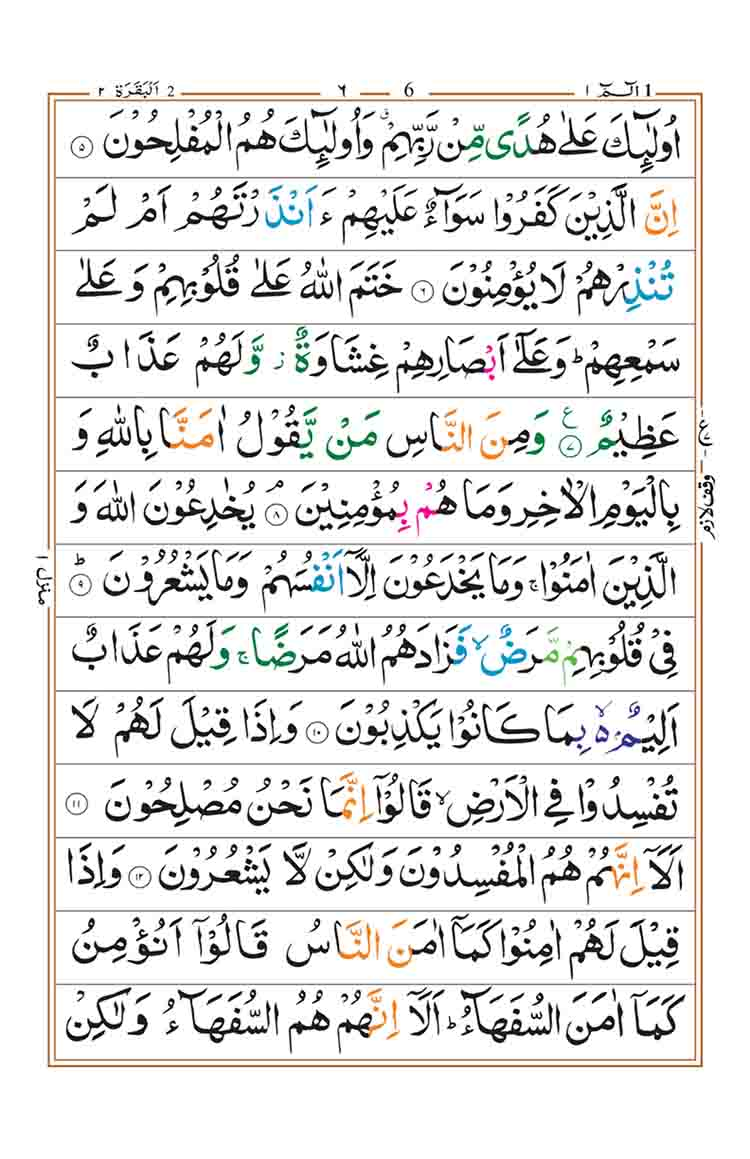 1 الٓـمّٓ ١ 6 ٦ 2 اَلْبَقَرَة ٢
اُولٰٓئِكَ عَلٰى هُدًى مِّنْ رَّبِّهِمْ ۗ وَاُولٰٓئِكَ هُمُ الْمُفْلِحُوْنَ ۝٥
اِنَّ الَّذِيْنَ كَفَرُوْا سَوَآءٌ عَلَيْهِمْ ءَاَنْذَرْتَهُمْ اَمْ لَمْ
تُنْذِرْهُمْ لَا يُؤْمِنُوْنَ ۝٦ خَتَمَ اللّٰهُ عَلٰى قُلُوْبِهِمْ وَعَلٰى
سَمْعِهِمْ ؕ وَعَلٰٓى اَبْصَارِهِمْ غِشَاوَةٌ ز وَّلَهُمْ عَذَابٌ
عَظِيْمٌ ۝٧ ع وَمِنَ النَّاسِ مَنْ يَّقُوْلُ اٰمَنَّا بِاللّٰهِ وَ
بِالْيَوْمِ الْاٰخِرِ وَمَا هُمْ بِمُؤْمِنِيْنَ ۝٨ۘ يُخٰدِعُوْنَ اللّٰهَ وَ
الَّذِيْنَ اٰمَنُوْا ۚ وَمَا يَخْدَعُوْنَ اِلَّآ اَنْفُسَهُمْ وَمَا يَشْعُرُوْنَ ۝٩ؕ
فِىْ قُلُوْبِهِمْ مَّرَضٌ ۙ فَزَادَهُمُ اللّٰهُ مَرَضًا ۚ وَلَهُمْ عَذَابٌ
اَلِيْمٌ ۢ ۙ بِمَا كَانُوْا يَكْذِبُوْنَ ۝١٠ وَاِذَا قِيْلَ لَهُمْ لَا
تُفْسِدُوْا فِى الْاَرْضِ ۙ قَالُوْٓا اِنَّمَا نَحْنُ مُصْلِحُوْنَ ۝١١
اَلَآ اِنَّهُمْ هُمُ الْمُفْسِدُوْنَ وَلٰكِنْ لَّا يَشْعُرُوْنَ ۝١٢ وَاِذَا
قِيْلَ لَهُمْ اٰمِنُوْا كَمَآ اٰمَنَ النَّاسُ قَالُوْٓا اَنُؤْمِنُ
كَمَآ اٰمَنَ السُّفَهَآءُ ؕ اَلَآ اِنَّهُمْ هُمُ السُّفَهَآءُ وَلٰكِنْ
وقف لازم
منزل ١